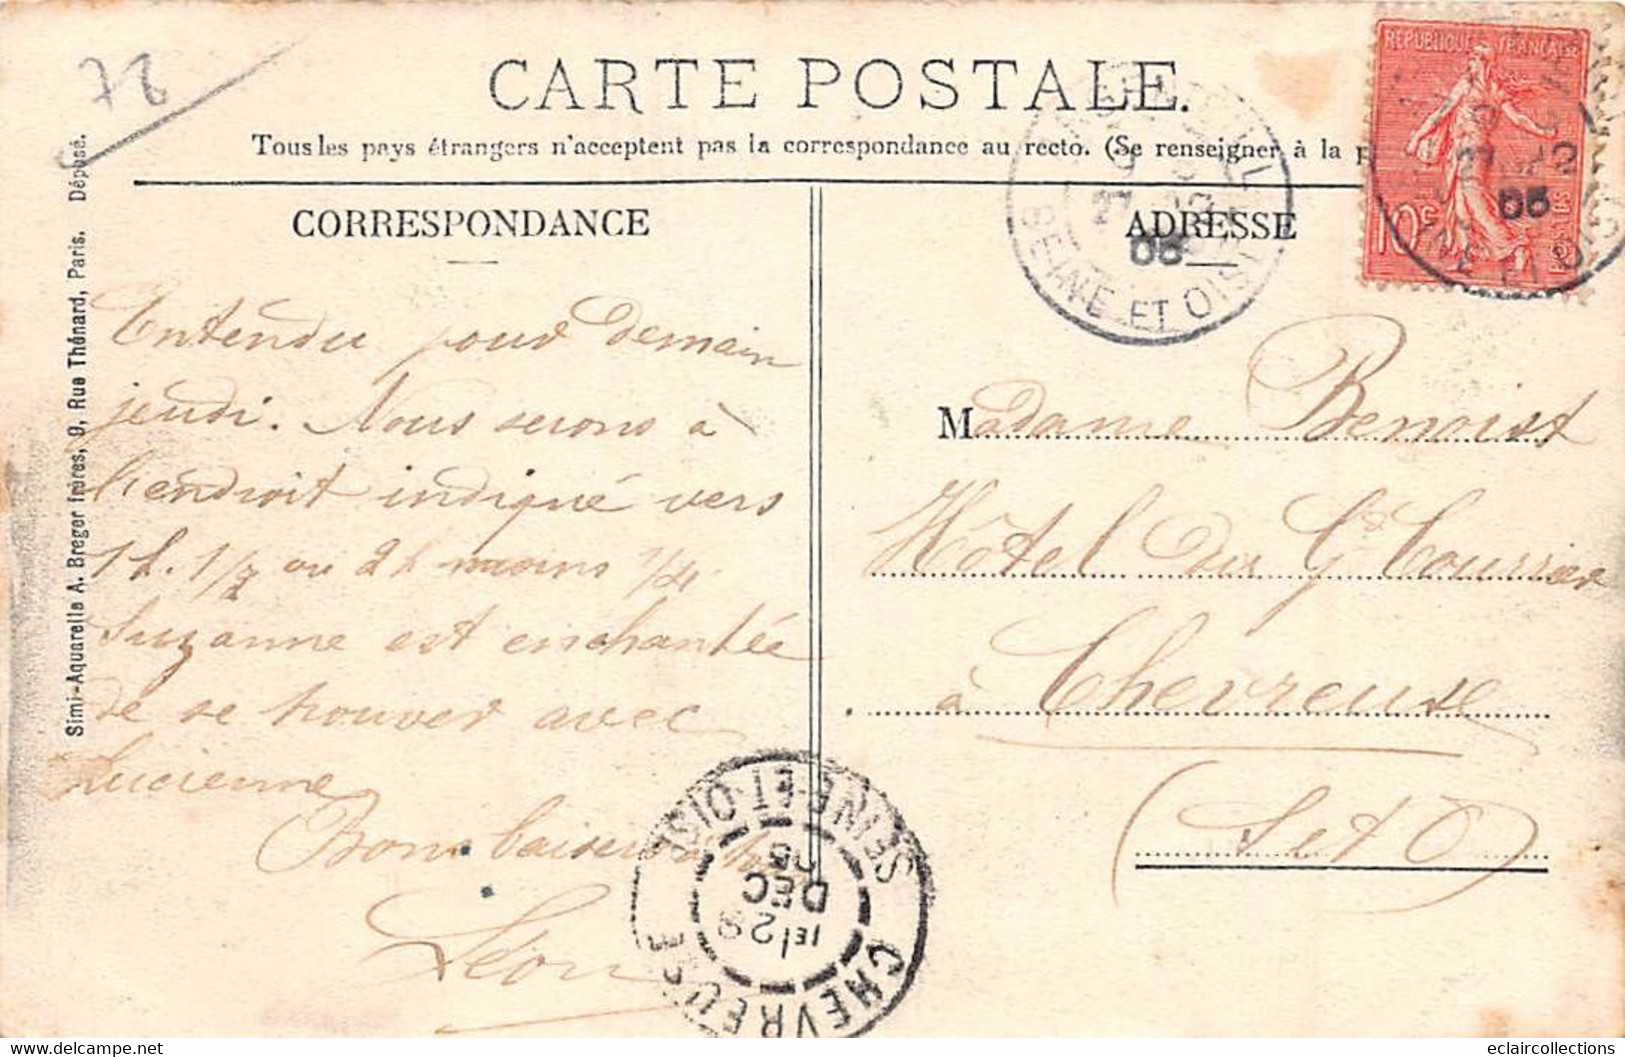 78
CARTE POSTALE.
Tous les pays étrangers n'acceptent pas la correspondance au recto. (Se renseigner à la p
CORRESPONDANCE
ADRESSE
Simi-Aquarelle A. Breger frères, 9, Rue Thénard, Paris. Déposé.
RÉPUBLIQUE FRANÇAISE
10c
SEINE ET OISE
06
06
Entendu pour demain
jeudi. Nous serons à
l'endroit indiqué vers
1 h. 1/2 ou 2 h moins 1/4
Suzanne est enchantée
de se trouver avec
Lucienne
Bons baisers à
Léon
Madame Benoist
Hôtel du Gd Courrier
à Chevreuse
(S et O)
CHEVREUSE
SEINE-ET-OISE
1E/29
DEC
06
delcampe.net
eclaircollections